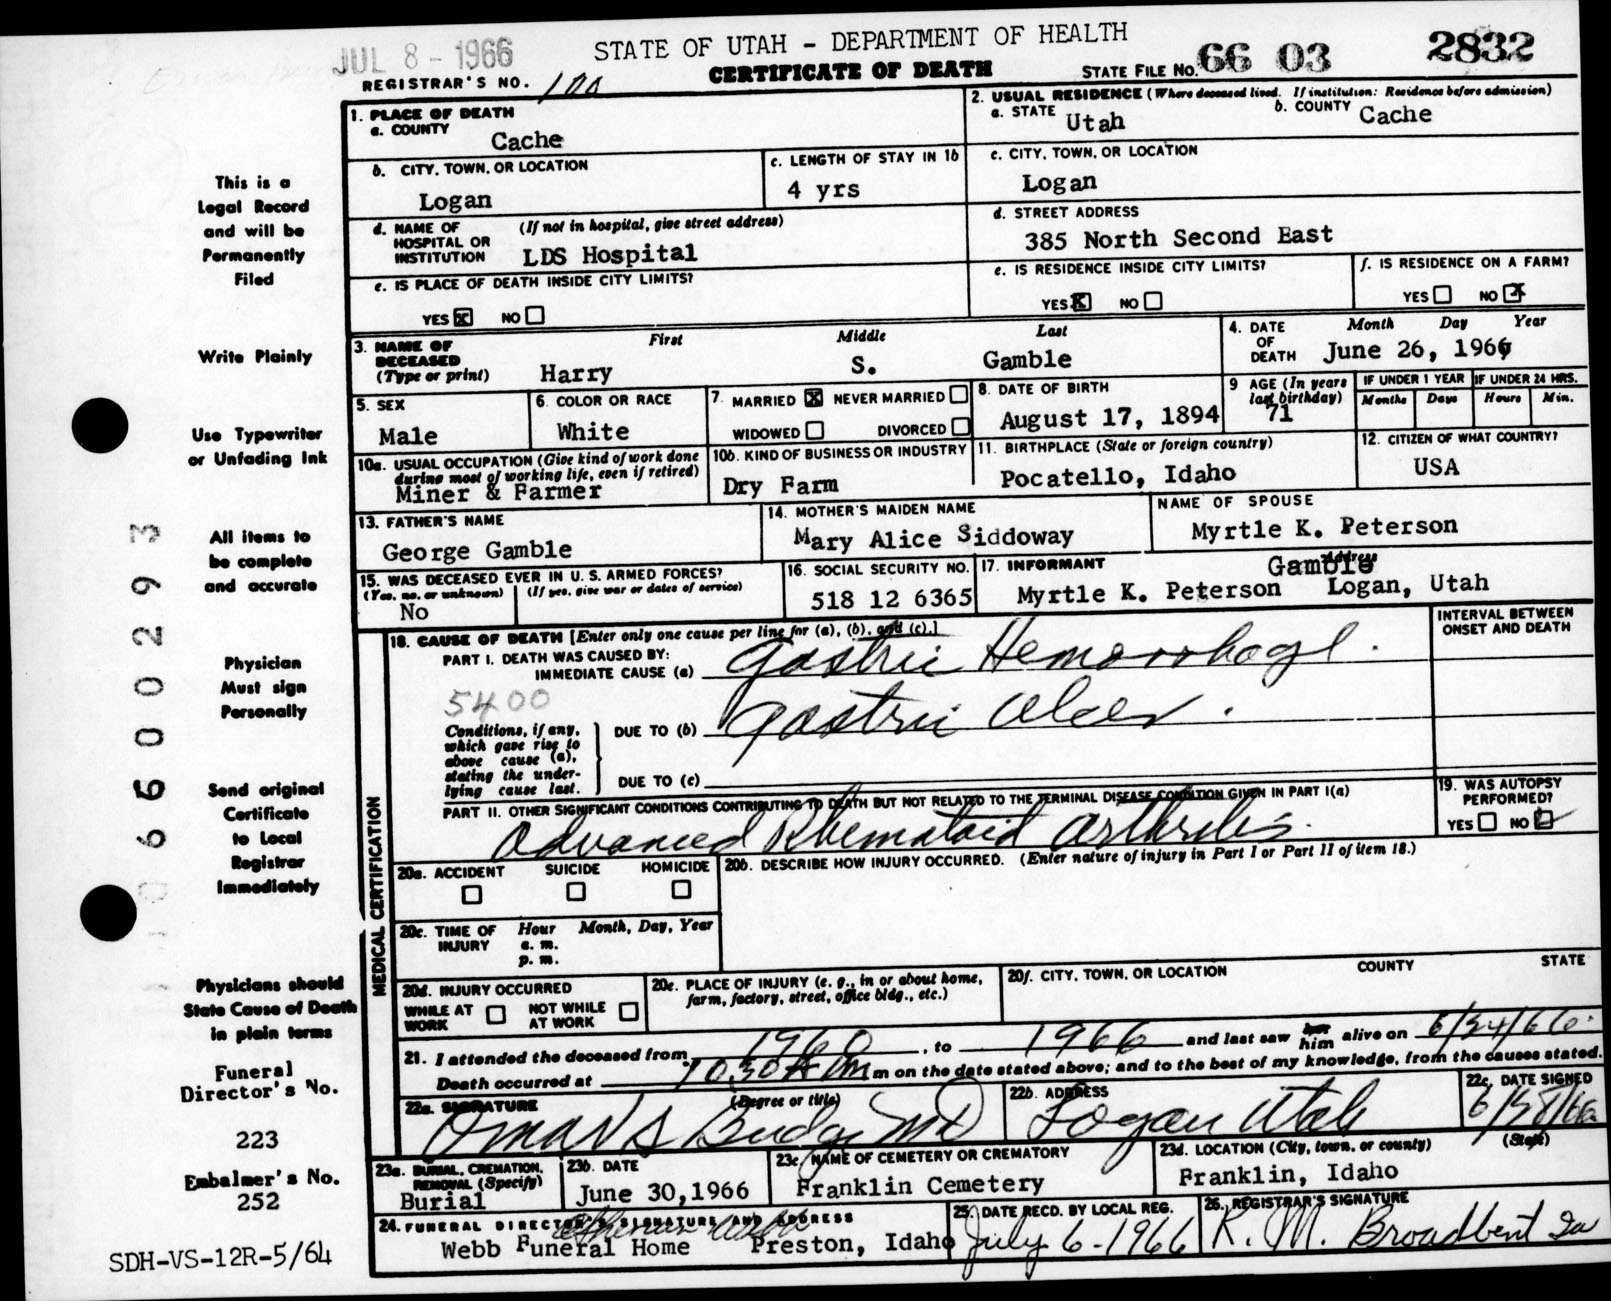 JUL 8 - 1966
STATE OF UTAH - DEPARTMENT OF HEALTH
CERTIFICATE OF DEATH
REGISTRAR'S NO. 100
STATE FILE NO. 66 03 2832
1. PLACE OF DEATH
a. COUNTY
Cache
2. USUAL RESIDENCE (Where deceased lived. If institution: Residence before admission)
a. STATE Utah
b. COUNTY Cache
b. CITY, TOWN, OR LOCATION
Logan
c. LENGTH OF STAY IN 1b
4 yrs
c. CITY, TOWN, OR LOCATION
Logan
d. NAME OF HOSPITAL OR INSTITUTION (If not in hospital, give street address)
LDS Hospital
d. STREET ADDRESS
385 North Second East
e. IS PLACE OF DEATH INSIDE CITY LIMITS?
YES X NO
e. IS RESIDENCE INSIDE CITY LIMITS?
YES X NO
f. IS RESIDENCE ON A FARM?
YES NO X
3. NAME OF DECEASED (Type or print)
First Middle Last
Harry S. Gamble
4. DATE OF DEATH
Month Day Year
June 26, 1966
5. SEX
Male
6. COLOR OR RACE
White
7. MARRIED X NEVER MARRIED
WIDOWED DIVORCED
8. DATE OF BIRTH
August 17, 1894
9 AGE (In years last birthday)
71
IF UNDER 1 YEAR
Months Days
IF UNDER 24 HRS.
Hours Min.
10a. USUAL OCCUPATION (Give kind of work done during most of working life, even if retired)
Miner & Farmer
10b. KIND OF BUSINESS OR INDUSTRY
Dry Farm
11. BIRTHPLACE (State or foreign country)
Pocatello, Idaho
12. CITIZEN OF WHAT COUNTRY?
USA
13. FATHER'S NAME
George Gamble
14. MOTHER'S MAIDEN NAME
Mary Alice Siddoway
NAME OF SPOUSE
Myrtle K. Peterson
15. WAS DECEASED EVER IN U. S. ARMED FORCES?
(Yes, no, or unknown) (If yes, give war or dates of service)
No
16. SOCIAL SECURITY NO.
518 12 6365
17. INFORMANT Address
Gamble
Myrtle K. Peterson Logan, Utah
MEDICAL CERTIFICATION
18. CAUSE OF DEATH [Enter only one cause per line for (a), (b), and (c).]
INTERVAL BETWEEN ONSET AND DEATH
PART I. DEATH WAS CAUSED BY:
IMMEDIATE CAUSE (a) Gastric Hemorrhage.
5400
Conditions, if any, which gave rise to above cause (a), stating the underlying cause last.
DUE TO (b) Gastric Ulcer.
DUE TO (c)
PART II. OTHER SIGNIFICANT CONDITIONS CONTRIBUTING TO DEATH BUT NOT RELATED TO THE TERMINAL DISEASE CONDITION GIVEN IN PART I(a)
Advanced Rhematoid Arthritis.
19. WAS AUTOPSY PERFORMED?
YES NO
20a. ACCIDENT SUICIDE HOMICIDE
20b. DESCRIBE HOW INJURY OCCURRED. (Enter nature of injury in Part I or Part II of item 18.)
20c. TIME OF INJURY
Hour Month, Day, Year
a. m.
p. m.
20d. INJURY OCCURRED
WHILE AT WORK NOT WHILE AT WORK
20e. PLACE OF INJURY (e. g., in or about home, farm, factory, street, office bldg., etc.)
20f. CITY, TOWN, OR LOCATION COUNTY STATE
21. I attended the deceased from 1960, to 1966 and last saw her him alive on 6/24/66.
Death occurred at 10:30 A m m on the date stated above; and to the best of my knowledge, from the causes stated.
22a. SIGNATURE (Degree or title)
Omar S Budge MD
22b. ADDRESS
Logan Utah
22c. DATE SIGNED
6/28/66
23a. BURIAL, CREMATION, REMOVAL (Specify)
Burial
23b. DATE
June 30, 1966
23c. NAME OF CEMETERY OR CREMATORY
Franklin Cemetery
23d. LOCATION (City, town, or county) (State)
Franklin, Idaho
24. FUNERAL DIRECTOR'S SIGNATURE AND ADDRESS
Webb
Webb Funeral Home Preston, Idaho
25. DATE RECD. BY LOCAL REG.
July 6-1966
26. REGISTRAR'S SIGNATURE
R. M. Broadbent
This is a
Legal Record
and will be
Permanently
Filed
Write Plainly
Use Typewriter
or Unfading Ink
All items to
be complete
and accurate
Physician
Must sign
Personally
Send original
Certificate
to Local
Registrar
Immediately
Physicians should
State Cause of Death
in plain terms
Funeral
Director's No.
223
Embalmer's No.
252
SDH-VS-12R-5/64
6600293